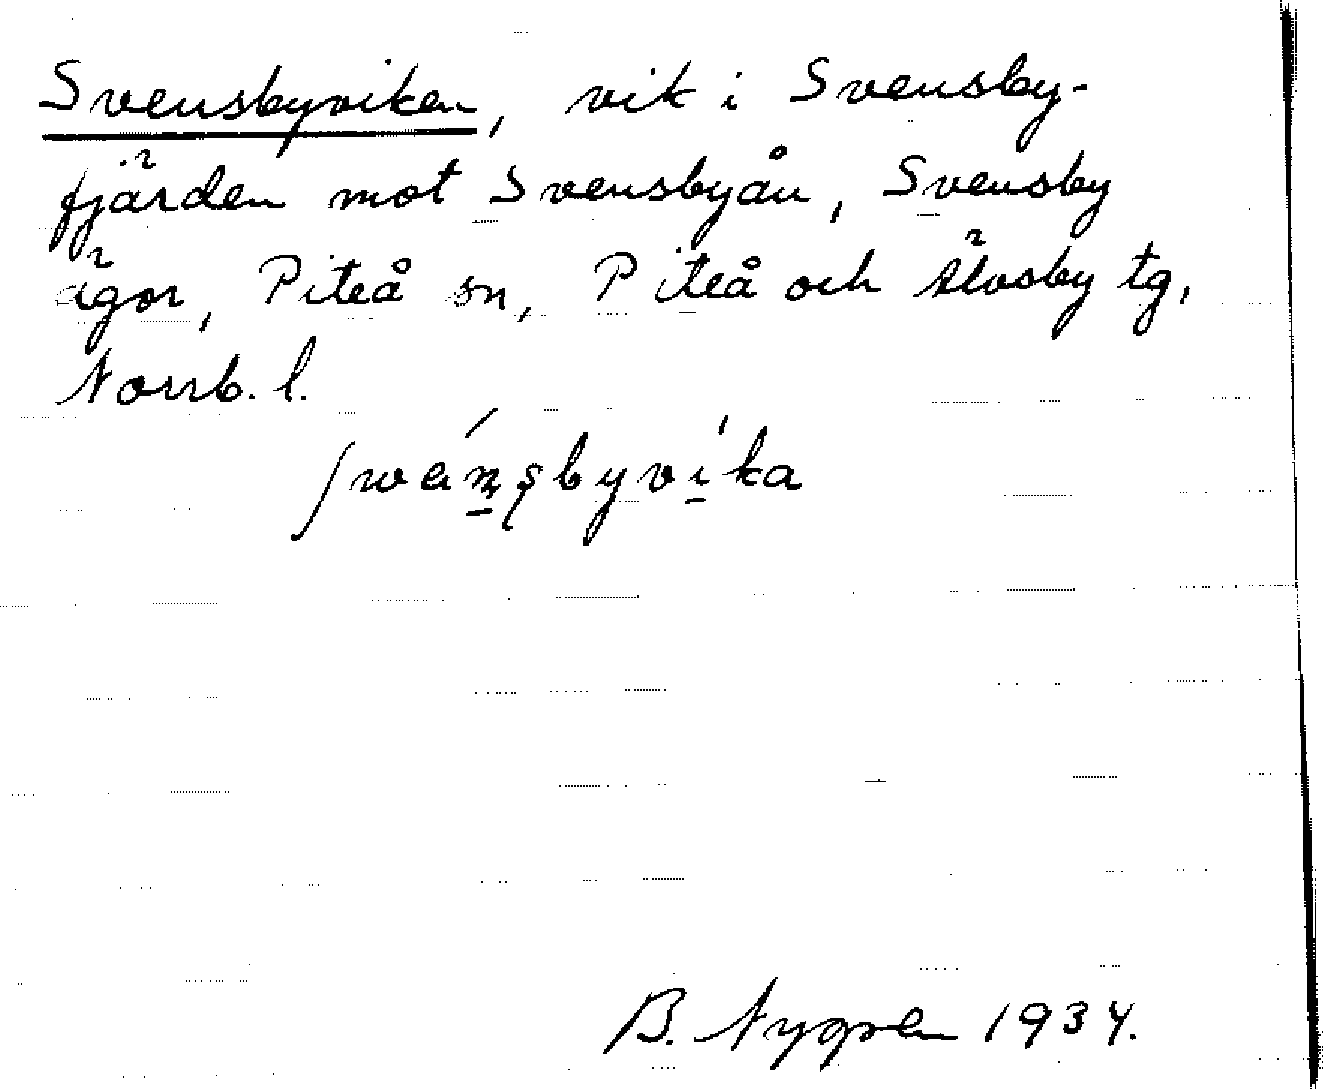 Svensbyviken, vik i Svensby-
fjärden mot Svensbyån, Svensby
ägor, Piteå sn, Piteå och Älvsby tg,
Norrb. l.
ʃwénsbyvíka
B. Nygren 1934.